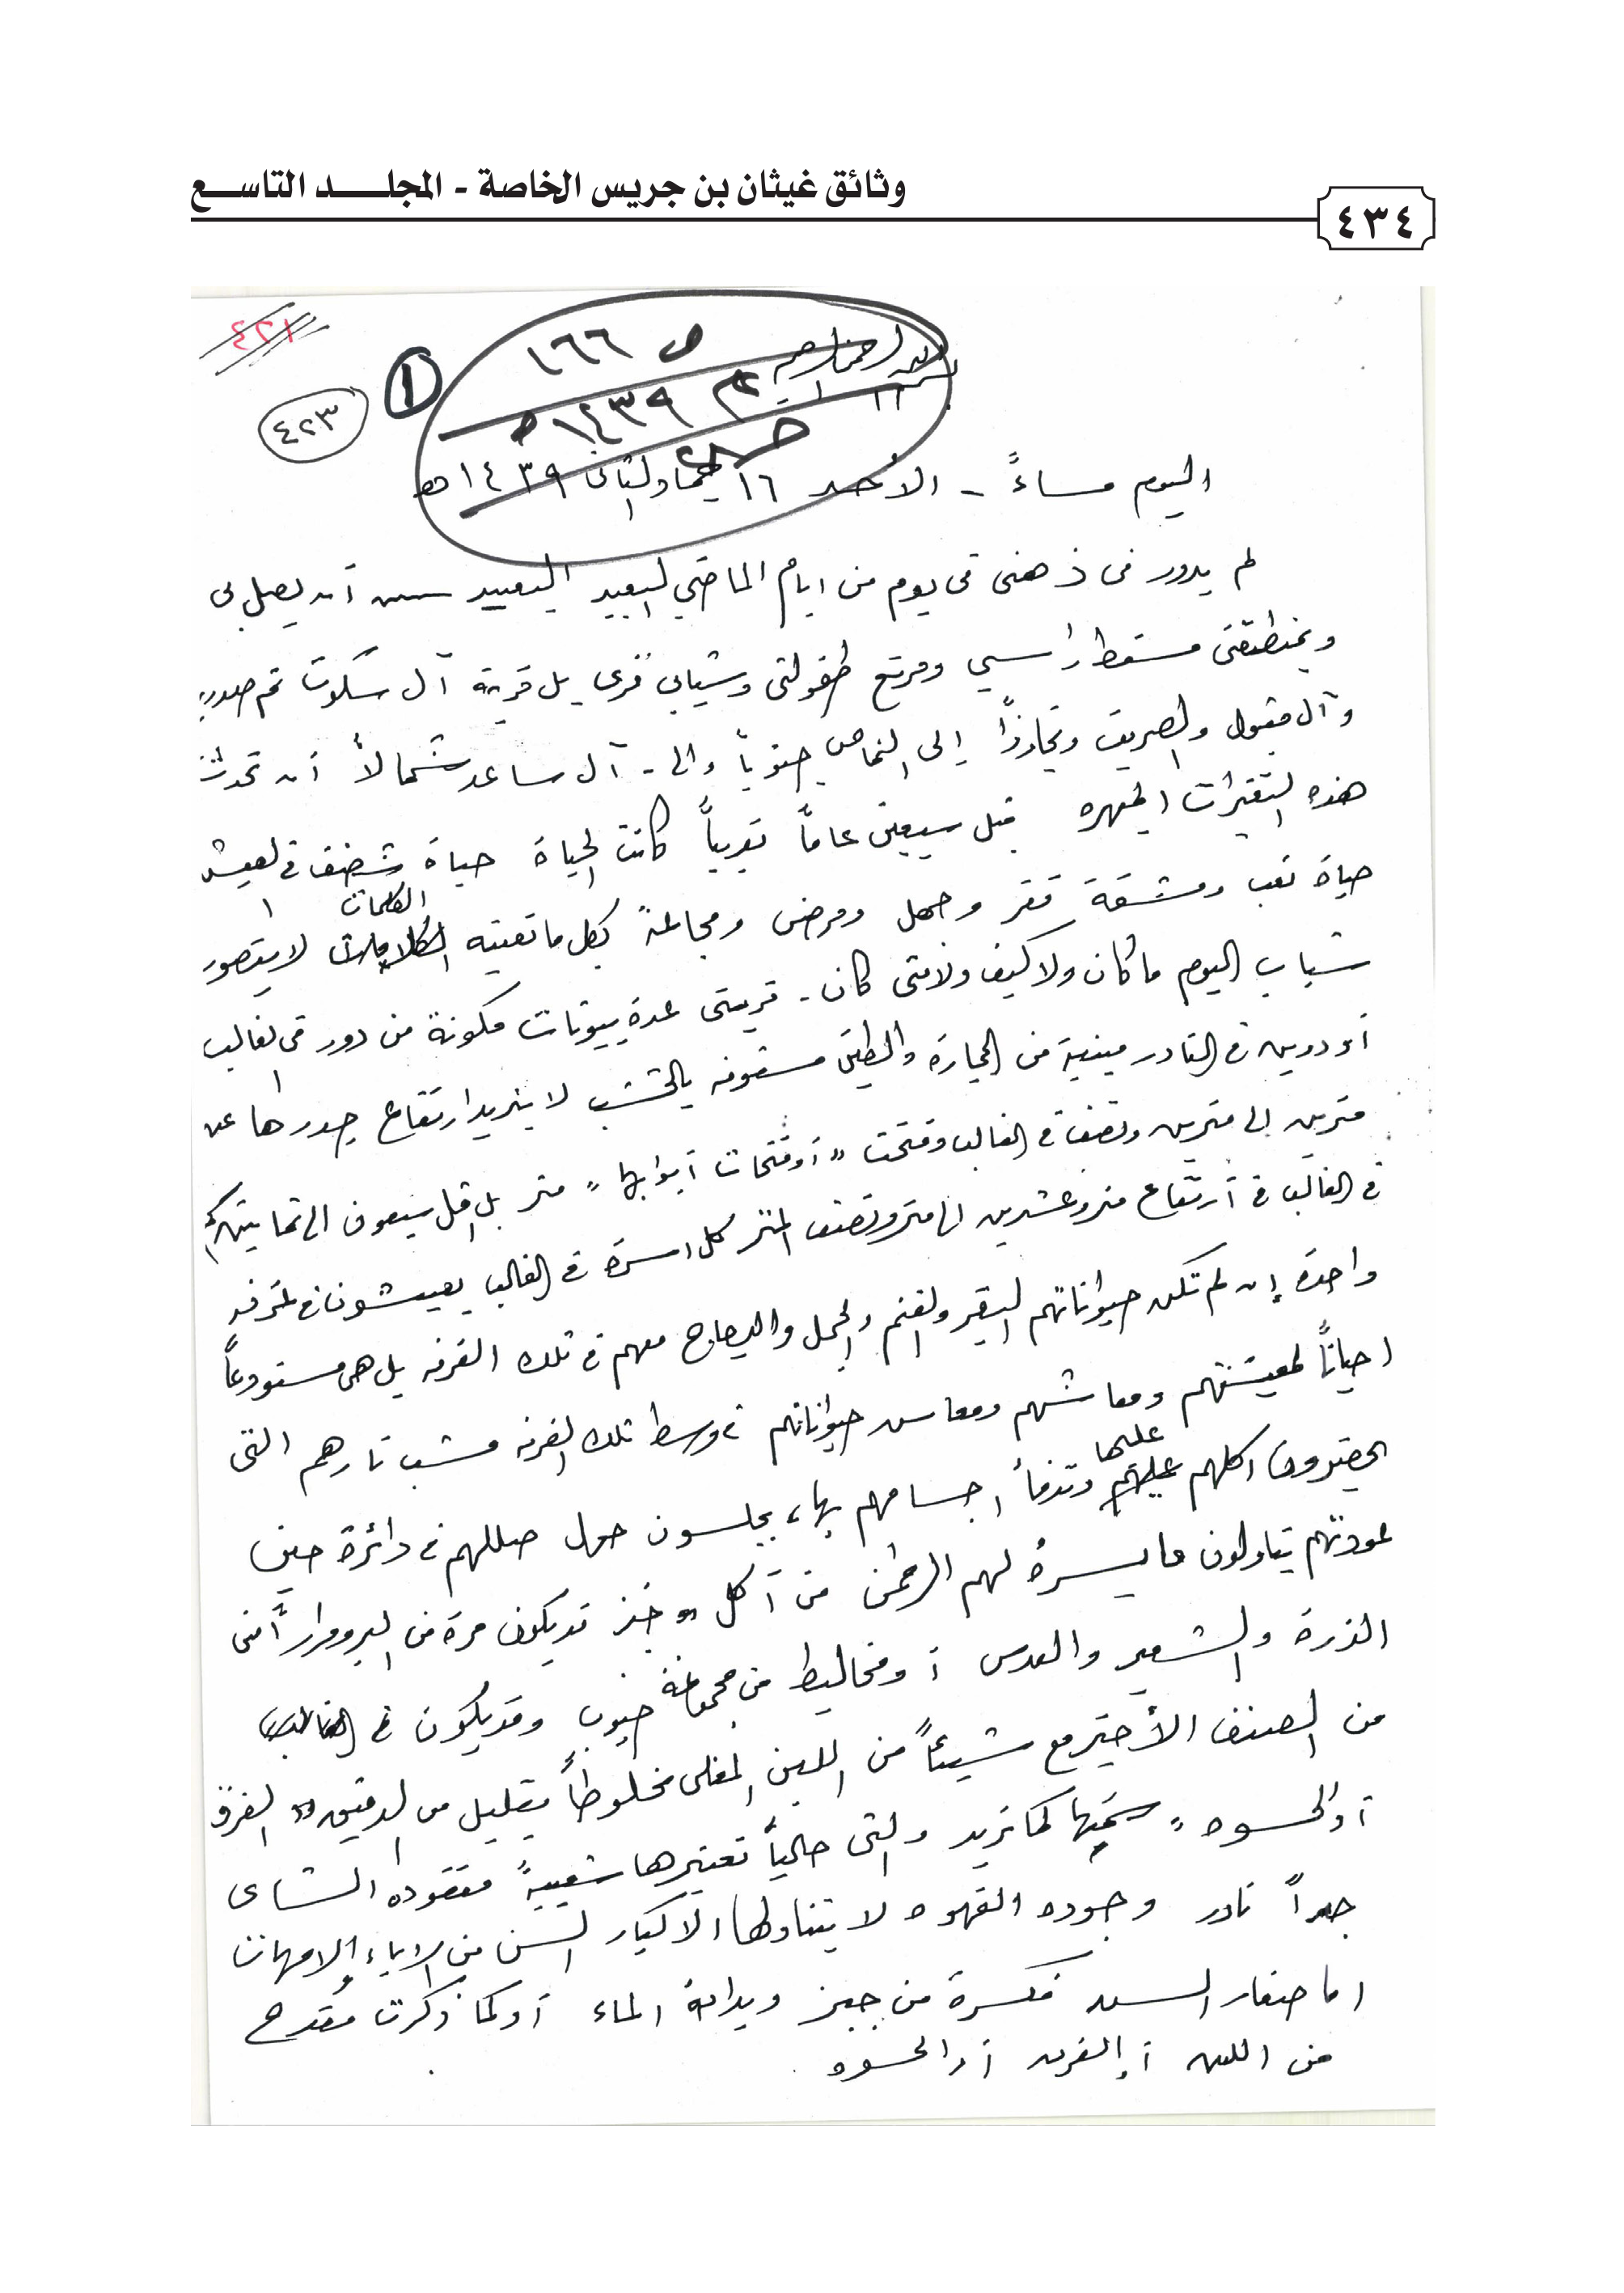 وثائق غيثان بن جريس الخاصة - المجلـــد التاســـع
٤٣٤
٤٢١
ص ١٦٦
بسم الله الرحمن الرحيم
١
٤٢٣
١٤٣٩ هـ
اليوم مساءً - الأحد ١٦ جماد الثاني ١٤٣٩ هـ
لم يدور في ذهني في يوم من ايام الماضي البعيد البعيد أن يصل بي
وبمنطقتي مسقط راسي ومرتع طفولتي وشبابي قرى بل قرية آل سكوت ثم صدريد
وآل مقبول والصريف وتجاوزاً إلى النماص جنوباً والى آل ساعد شمالاً أن تحدث
هذه التغيرات المبهره قبل سبعين عاماً تقريباً كانت الحياة حياة شضف في العيش
حياة تعب ومشقة فقر وجهل ومرض ومجاعة بكل ما تعنيه الكلمات لا يتصور
شباب اليوم ما كان ولا كيف ولا متى كان - قريتي عدة بيوتات مكونة من دور في الغالب
أو دورين في النادر مبنية من الحجارة والطين مسقوفه بالخشب لا يزيد ارتفاع جدرها عن
مترين الى مترين ونصف في الغالب وفتحت " أو فتحات أبوابها " متر بل اقل سبعون الى ثمانين
في الغالب في أرتفاع متر وعشرين الى متر ونصف المتر كل اسرة في الغالب يعيشون في غرفه
واحدة إن لم تكن حيواناتهم البقر والغنم والجمل والدجاج معهم في تلك الغرفه بل هي مستودعاً
احياناً لمعيشتهم ومعاشهم ومعاش حيواناتهم في وسط تلك الغرفه مشب نارهم التي
يحضرون اكلهم عليها وتدفأ اجسامهم بها، يجلسون حول صللهم في دائرة حين
عودتهم يتناولون ما يسره لهم الرحمن من أكل " خبز قد يكون مرة من البر ومراراً من
الذرة والشعير والعدس أو مخاليط من مجموعة حبوب وقد يكون في الغالب
من الصنف الأخير مع شيئاً من اللبن المغلى مخلوطاً بقليل من الدقيق " الفرق
أو الحسوه " سمّها كما تريد والتي حالياً تعتبرها شعبيةً مفقوده الشاي
جداً نادر وجوده القهوه لا يتناولها الا كبار السن من الاباء والامهات
اما صغار السن فكسرة من خبز وبداية الماء أو كما ذكرت مقدح
من اللبن أو الفرق أو الحسوه